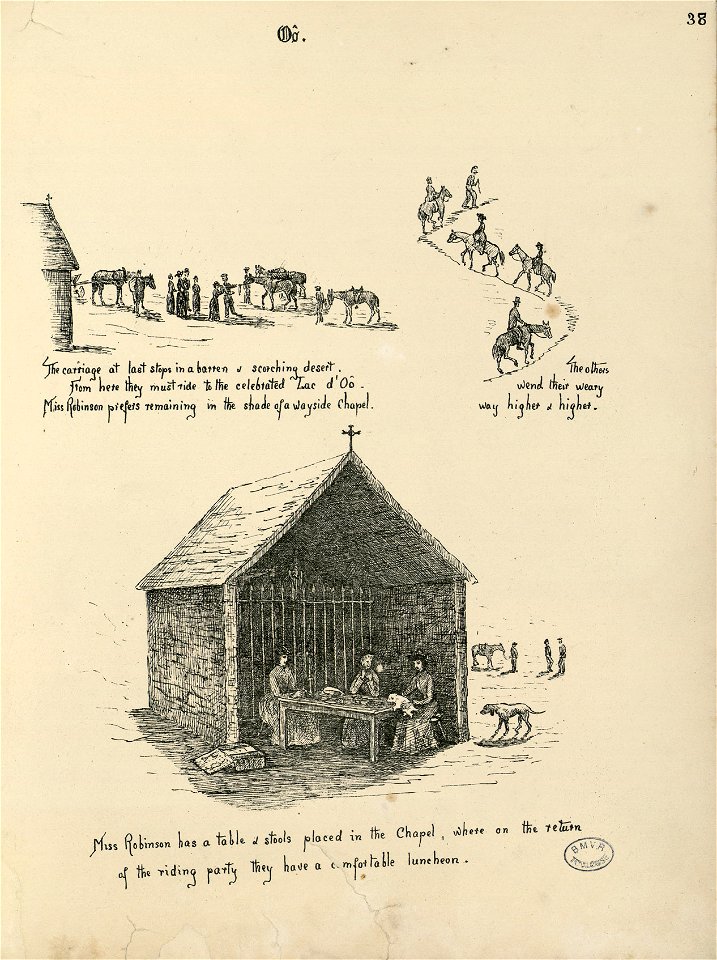 38
Oô.
The carriage at last stops in a barren & scorching desert.
From here they must ride to the celebrated "Lac d'Oô.
Miss Robinson prefers remaining in the shade of a wayside Chapel.
The others
wend their weary
way higher & higher.
Miss Robinson has a table & stools placed in the Chapel, where on the return
of the riding party they have a comfortable luncheon.
B.M.V.R
TOULOUSE